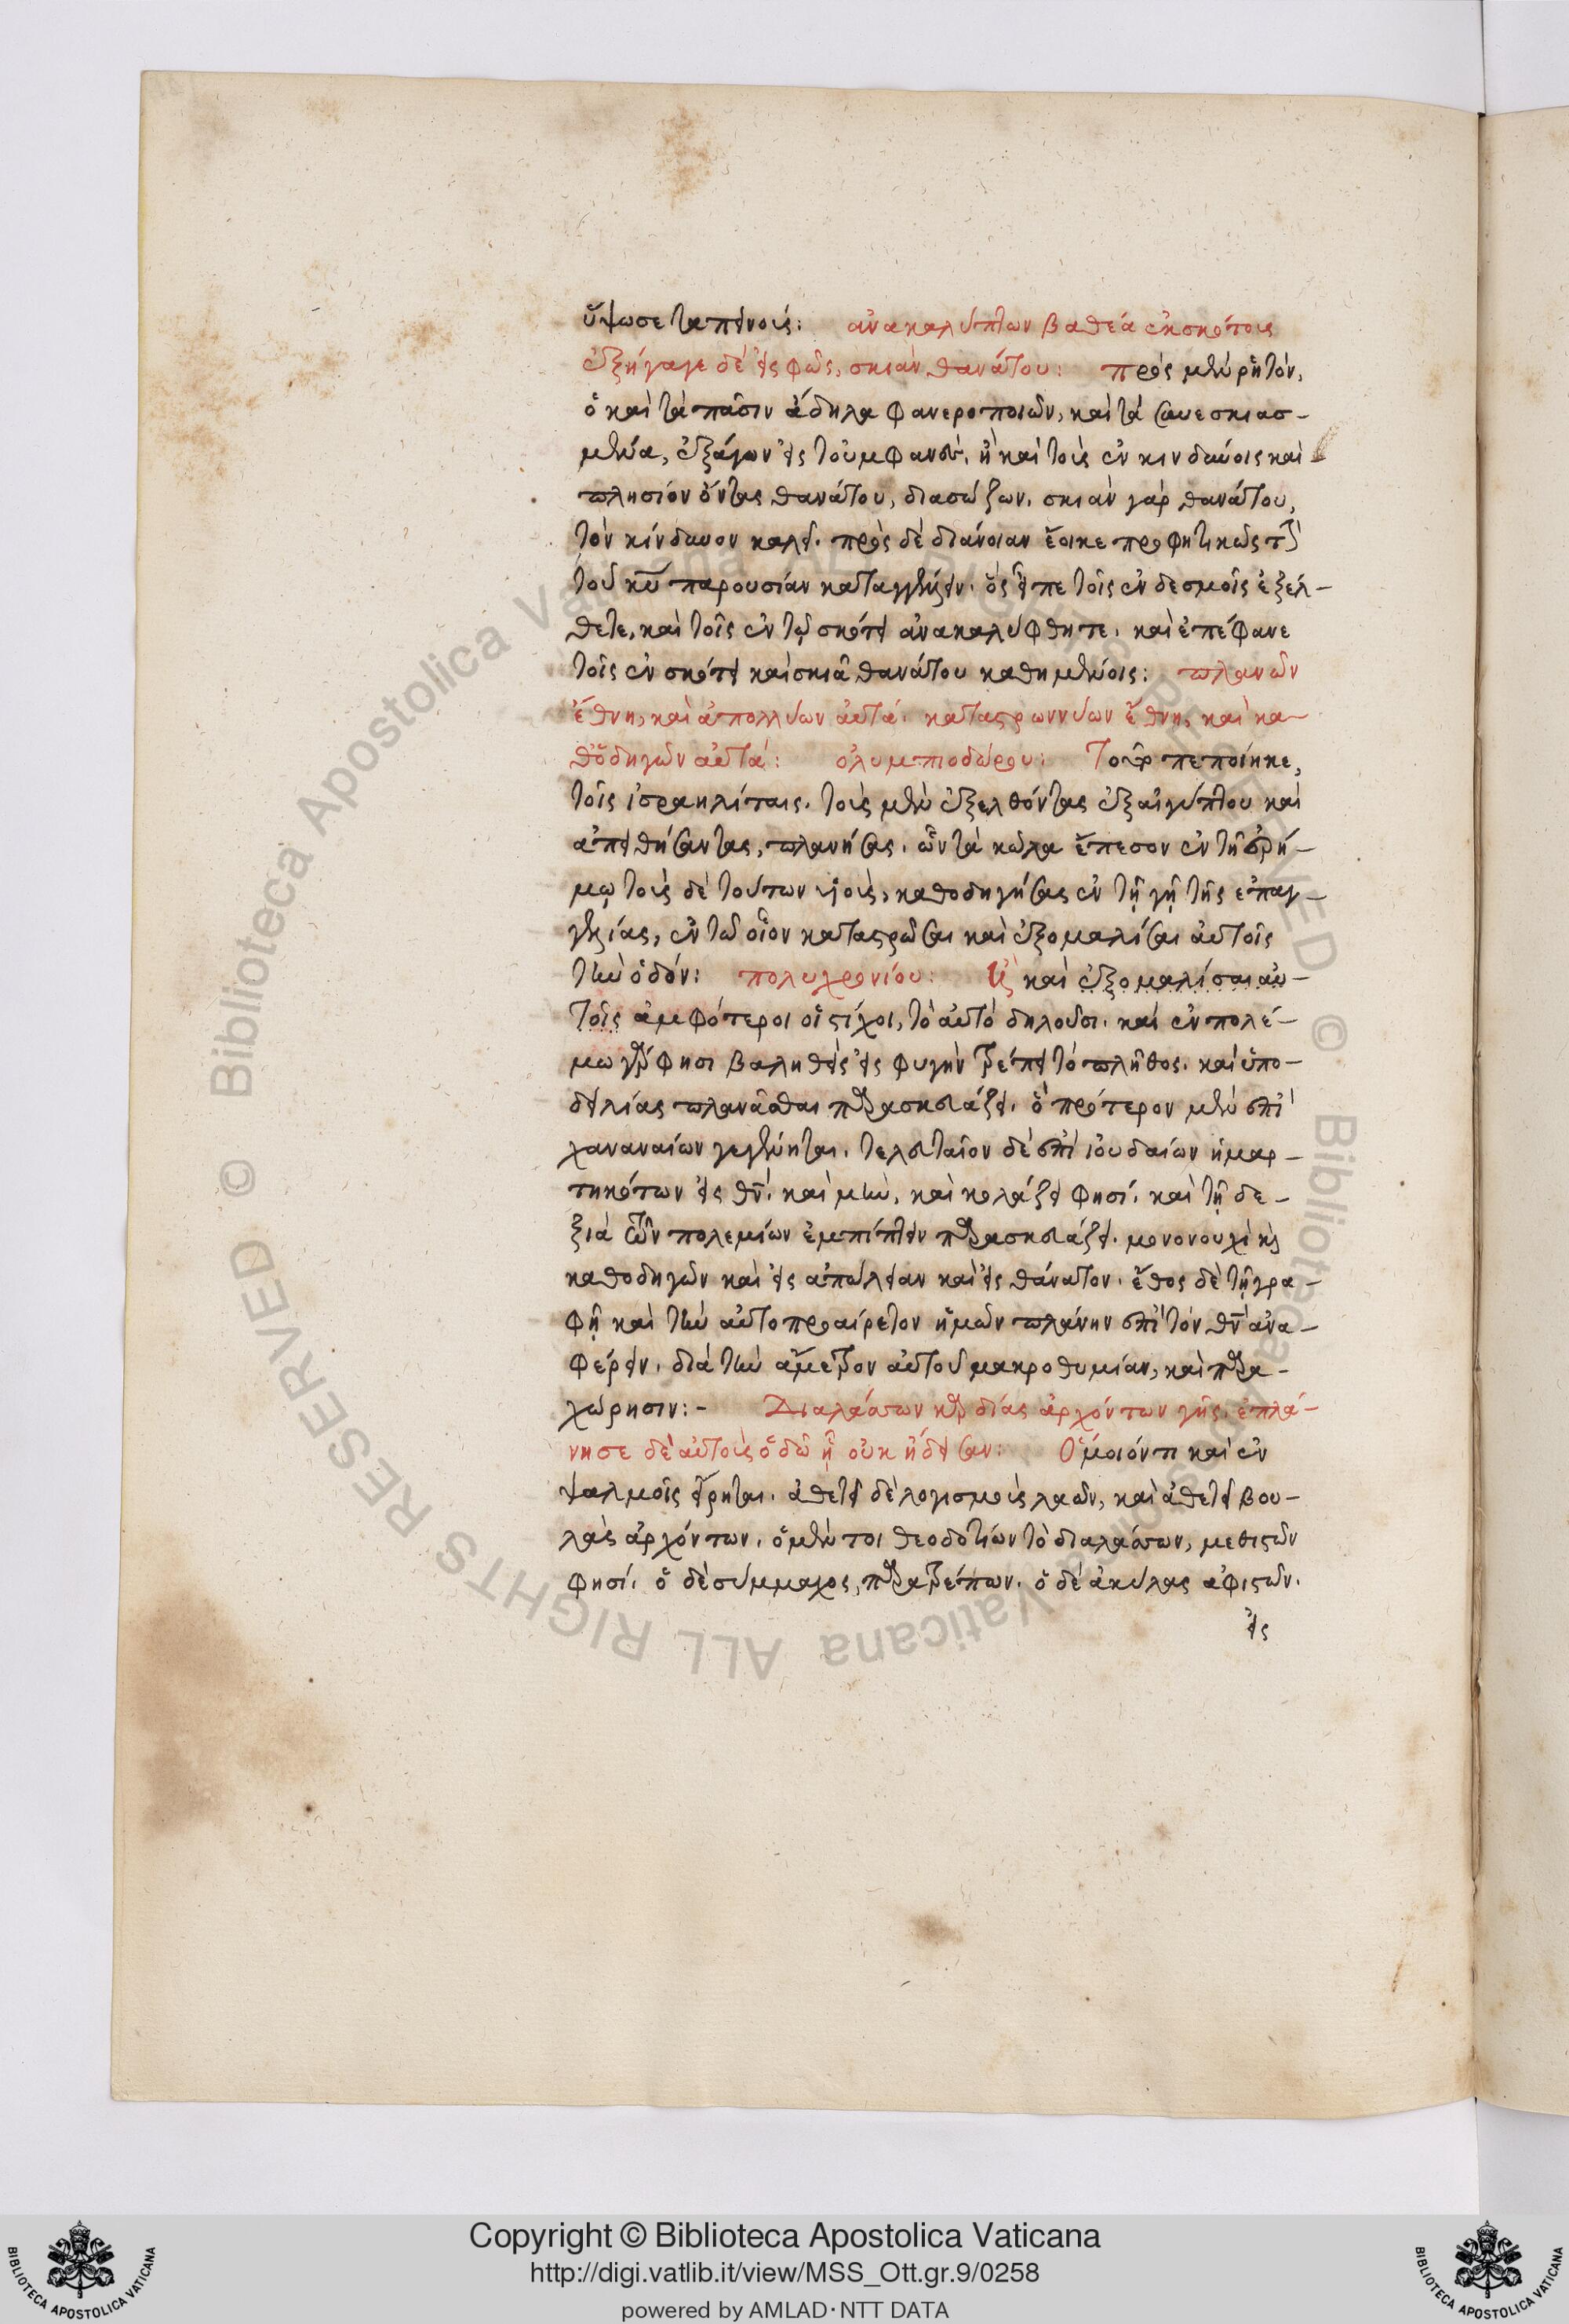 ὕψωσε ταπεινούς: ἀνακαλύπτων βαθέα ἐκ σκότους
ἐξήγαγε δὲ εἰς φῶς, σκιὰν θανάτου: πρὸς μὲν ῥητὸν,
ὁ καὶ τὰ πᾶσιν ἄδηλα φανεροποιῶν, καὶ τὰ συνεσκιασ-
μένα, ἐξάγων εἰς τοὐμφανές. ἢ καὶ τοὺς ἐν κινδύνοις καὶ
πλησίον ὄντας θανάτου, διασώζων. σκιὰν γὰρ θανάτου,
τὸν κίνδυνον καλεῖ. πρὸς δὲ διάνοιαν ἔοικε προφητικῶς τὴν
τοῦ κυ παρουσίαν καταγγέλλειν. ὃς εἶπε τοῖς ἐν δεσμοῖς ἐξέλ-
θετε, καὶ τοῖς ἐν τῷ σκότει ἀνακαλύφθητε. καὶ ἐπέφανε
τοῖς ἐν σκότει καὶ σκιᾷ θανάτου καθημένοις: πλανῶν
ἔθνη, καὶ ἀπολλύων αὐτά. καταστρωννύων ἔθνη, καὶ κα-
θοδηγῶν αὐτά: ὀλυμπιοδώρου: Τοῦτο πεποίηκε,
τοῖς ἰσραηλίταις. τοὺς μὲν ἐξελθόντας ἐξ αἰγύπτου καὶ
ἀπειθήσαντας, πλανήσας. ὧν τὰ κῶλα ἔπεσον ἐν τῇ ἐρή-
μῳ τοὺς δὲ τούτων υἱοὺς, καθοδηγήσας ἐν τῇ γῇ τῆς ἐπαγ-
γελίας, ἐν τῷ οἷον καταστρῶσαι καὶ ἐξομαλίσαι αὐτοῖς
τὴν ὁδόν: πολυχρονίου: καὶ ἐξομαλίσαι αὐ-
τοῖς ἀμφότεροι οἱ στίχοι, τὸ αὐτὸ δηλοῦσι. καὶ ἐν πολέ-
μῳ γάρ φησι βαληθεὶς εἰς φυγὴν τρέπει τὸ πλῆθος. καὶ ὑπο-
δειλίας πλανᾶσθαι παρασκευάζει. ὃ πρότερον μὲν ἐπὶ
χαναναίων γεγένηται. τελευταῖον δὲ ἐπὶ ἰουδαίων ἡμαρ-
τηκότων εἰς θν. καὶ μὴν, καὶ κολάζει φησί. καὶ τῇ δε-
ξιᾷ τῶν πολεμίων ἐμπίπτειν παρασκευάζει. μονονουχὶ καὶ
καθοδηγῶν καὶ εἰς ἀπώλειαν καὶ εἰς θάνατον. ἔθος δὲ τῇ γρα-
φῇ καὶ τὴν αὐτοπροαίρετον ἡμῶν πλάνην ἐπὶ τὸν θν ἀνα-
φέρειν. διὰ τὴν ἄμετρον αὐτοῦ μακροθυμίαν, καὶ παρα-
χώρησιν:- Διαλάσσων καρδίας ἀρχόντων γῆς. ἐπλά-
νησε δὲ αὐτοὺς ὁδῷ ᾗ οὐκ ᾔδεισαν: Ὅμοιόν τι καὶ ἐν
ψαλμοῖς εἴρηται. ἀθετεῖ δὲ λογισμοὺς λαῶν, καὶ ἀθετεῖ βου-
λὰς ἀρχόντων. ὁ μέν τοι θεοδοτίων τὸ διαλάσσων, μεθιστῶν
φησί. ὁ δὲ σύμμαχος, παρατρέπων. ὁ δὲ ἀκύλας ἀφιστῶν.
εἰς
Copyright © Biblioteca Apostolica Vaticana
http://digi.vatlib.it/view/MSS_Ott.gr.9/0258
powered by AMLAD·NTT DATA